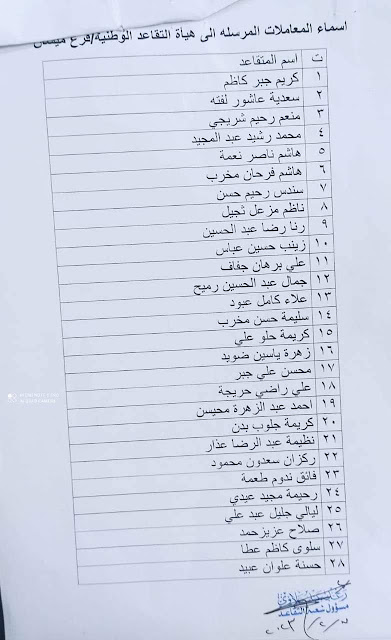 اسماء المعاملات المرسله الى هياة التقاعد الوطنية/فرع ميسان
ت اسم المتقاعد
١ كريم جبر كاظم
٢ سعدية عاشور لفته
٣ منعم رحيم شريجي
٤ محمد رشيد عبد المجيد
٥ هاشم ناصر نعمة
٦ هاشم فرحان مخرب
٧ سندس رحيم حسن
٨ ناظم مزعل ثجيل
٩ رنا رضا عبد الحسين
١٠ زينب حسين عباس
١١ علي برهان جفاف
١٢ جمال عبد الحسين رميح
١٣ علاء كامل عبود
١٤ سليمة حسن مخرب
١٥ كريمة حلو علي
١٦ زهرة ياسين ضويد
١٧ محسن علي جبر
١٨ علي راضي حريجة
١٩ احمد عبد الزهرة محيسن
٢٠ كريمة جلوب بدن
٢١ نظيمة عبد الرضا عذار
٢٢ ركزان سعدون محمود
٢٣ فائق ندوم طعمة
٢٤ رحيمة مجيد عيدي
٢٥ ليالي جليل عبد علي
٢٦ صلاح عزيزحمد
٢٧ سلوى كاظم عطا
٢٨ حسنة علوان عبيد
مسؤول شعبة التقاعد